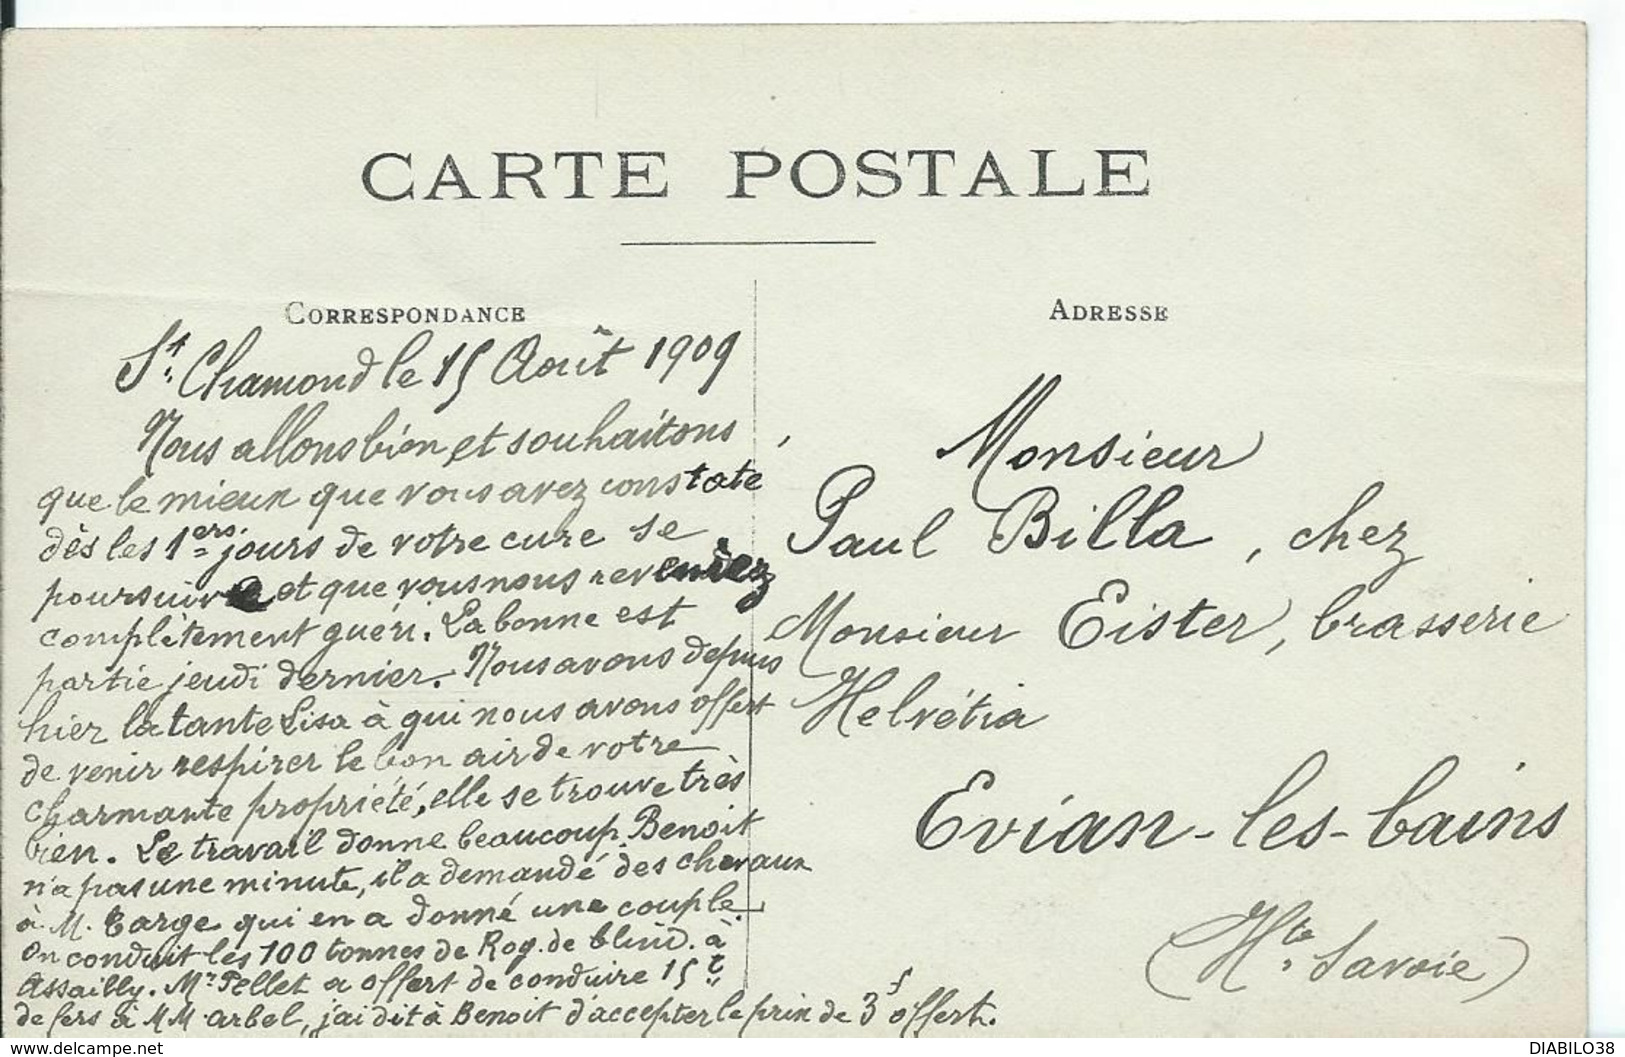 CARTE POSTALE
CORRESPONDANCE
St. Chamond le 15 Août 1909
Nous allons bien et souhaitons
que le mieux que vous avez constaté
dès les 1ers jours de votre cure se
poursuive et que vous nous reveniez
complètement guéri. La bonne est
partie jeudi dernier. Nous avons depuis
hier la tante Lisa à qui nous avons offert
de venir respirer le bon air de votre
charmante propriété, elle se trouve très
bien. Le travail donne beaucoup. Benoit
n'a pas une minute, il a demandé des chevaux
à M. Targe qui en a donné une couple.
On conduit les 100 tonnes de Rog. de blind. à
Assailly. Mr Pellet a offert de conduire 15 t.
de fers à MM. arbel, j'ai dit à Benoit d'accepter le prix de 3f offert.
ADRESSE
Monsieur
Paul Billa, chez
Monsieur Eister, brasserie
Helvétia
Evian-les-bains
(Hte. Savoie)
DIABILO38